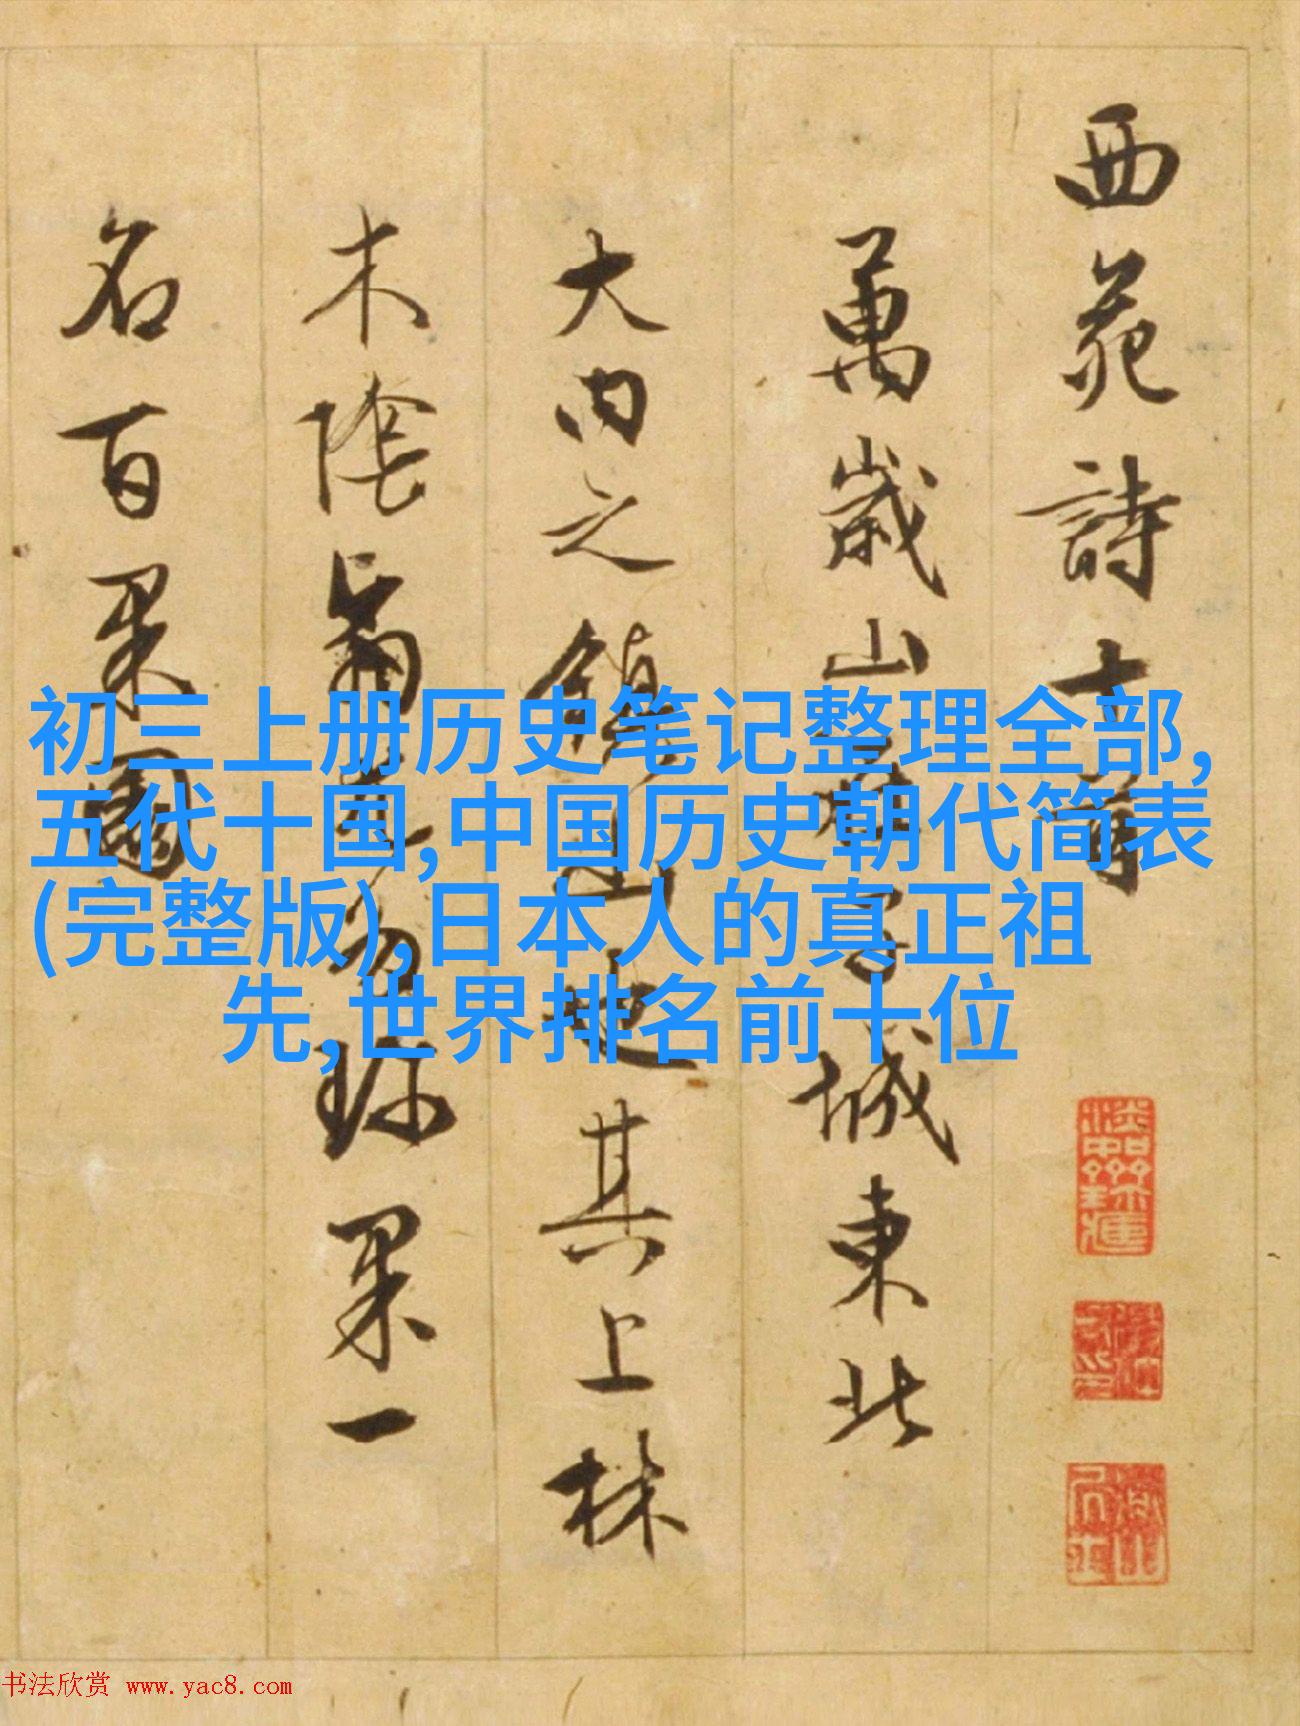 西苑詩十首
萬歲山在子城東北
大內之鎮山也其上林
木陰翳尤多珍果一
名百果園
初三上册历史笔记整理全部,
五代十国,中国历史朝代简表
(完整版),日本人的真正祖
先,世界排名前十位
书法欣赏 www.yac8.com